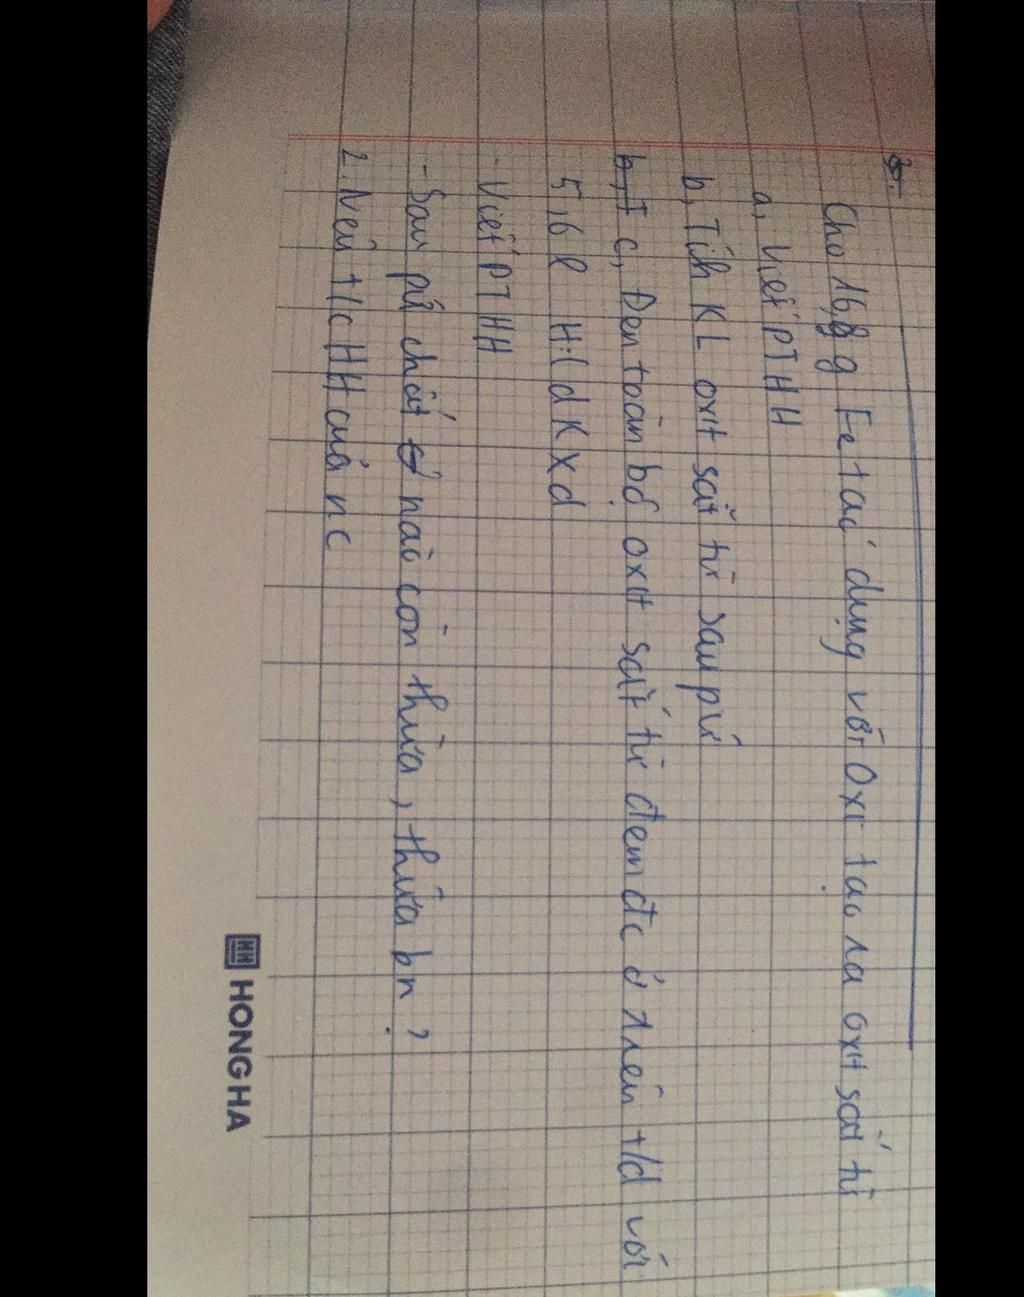 Cho 16,8 g Fe tác dụng với Oxi tạo ra oxit sắt từ
a, Viết PTHH
b, Tính KL oxit sắt từ sau pứ
c, Đen toàn bộ oxit sắt từ đem đc ở trên t/d với
5,6 l H2 (dKxd
- Viết PTHH
- Sau pứ chất nào còn thừa, thừa bn?
2. Nêu t/c HH của nc
HONG HA